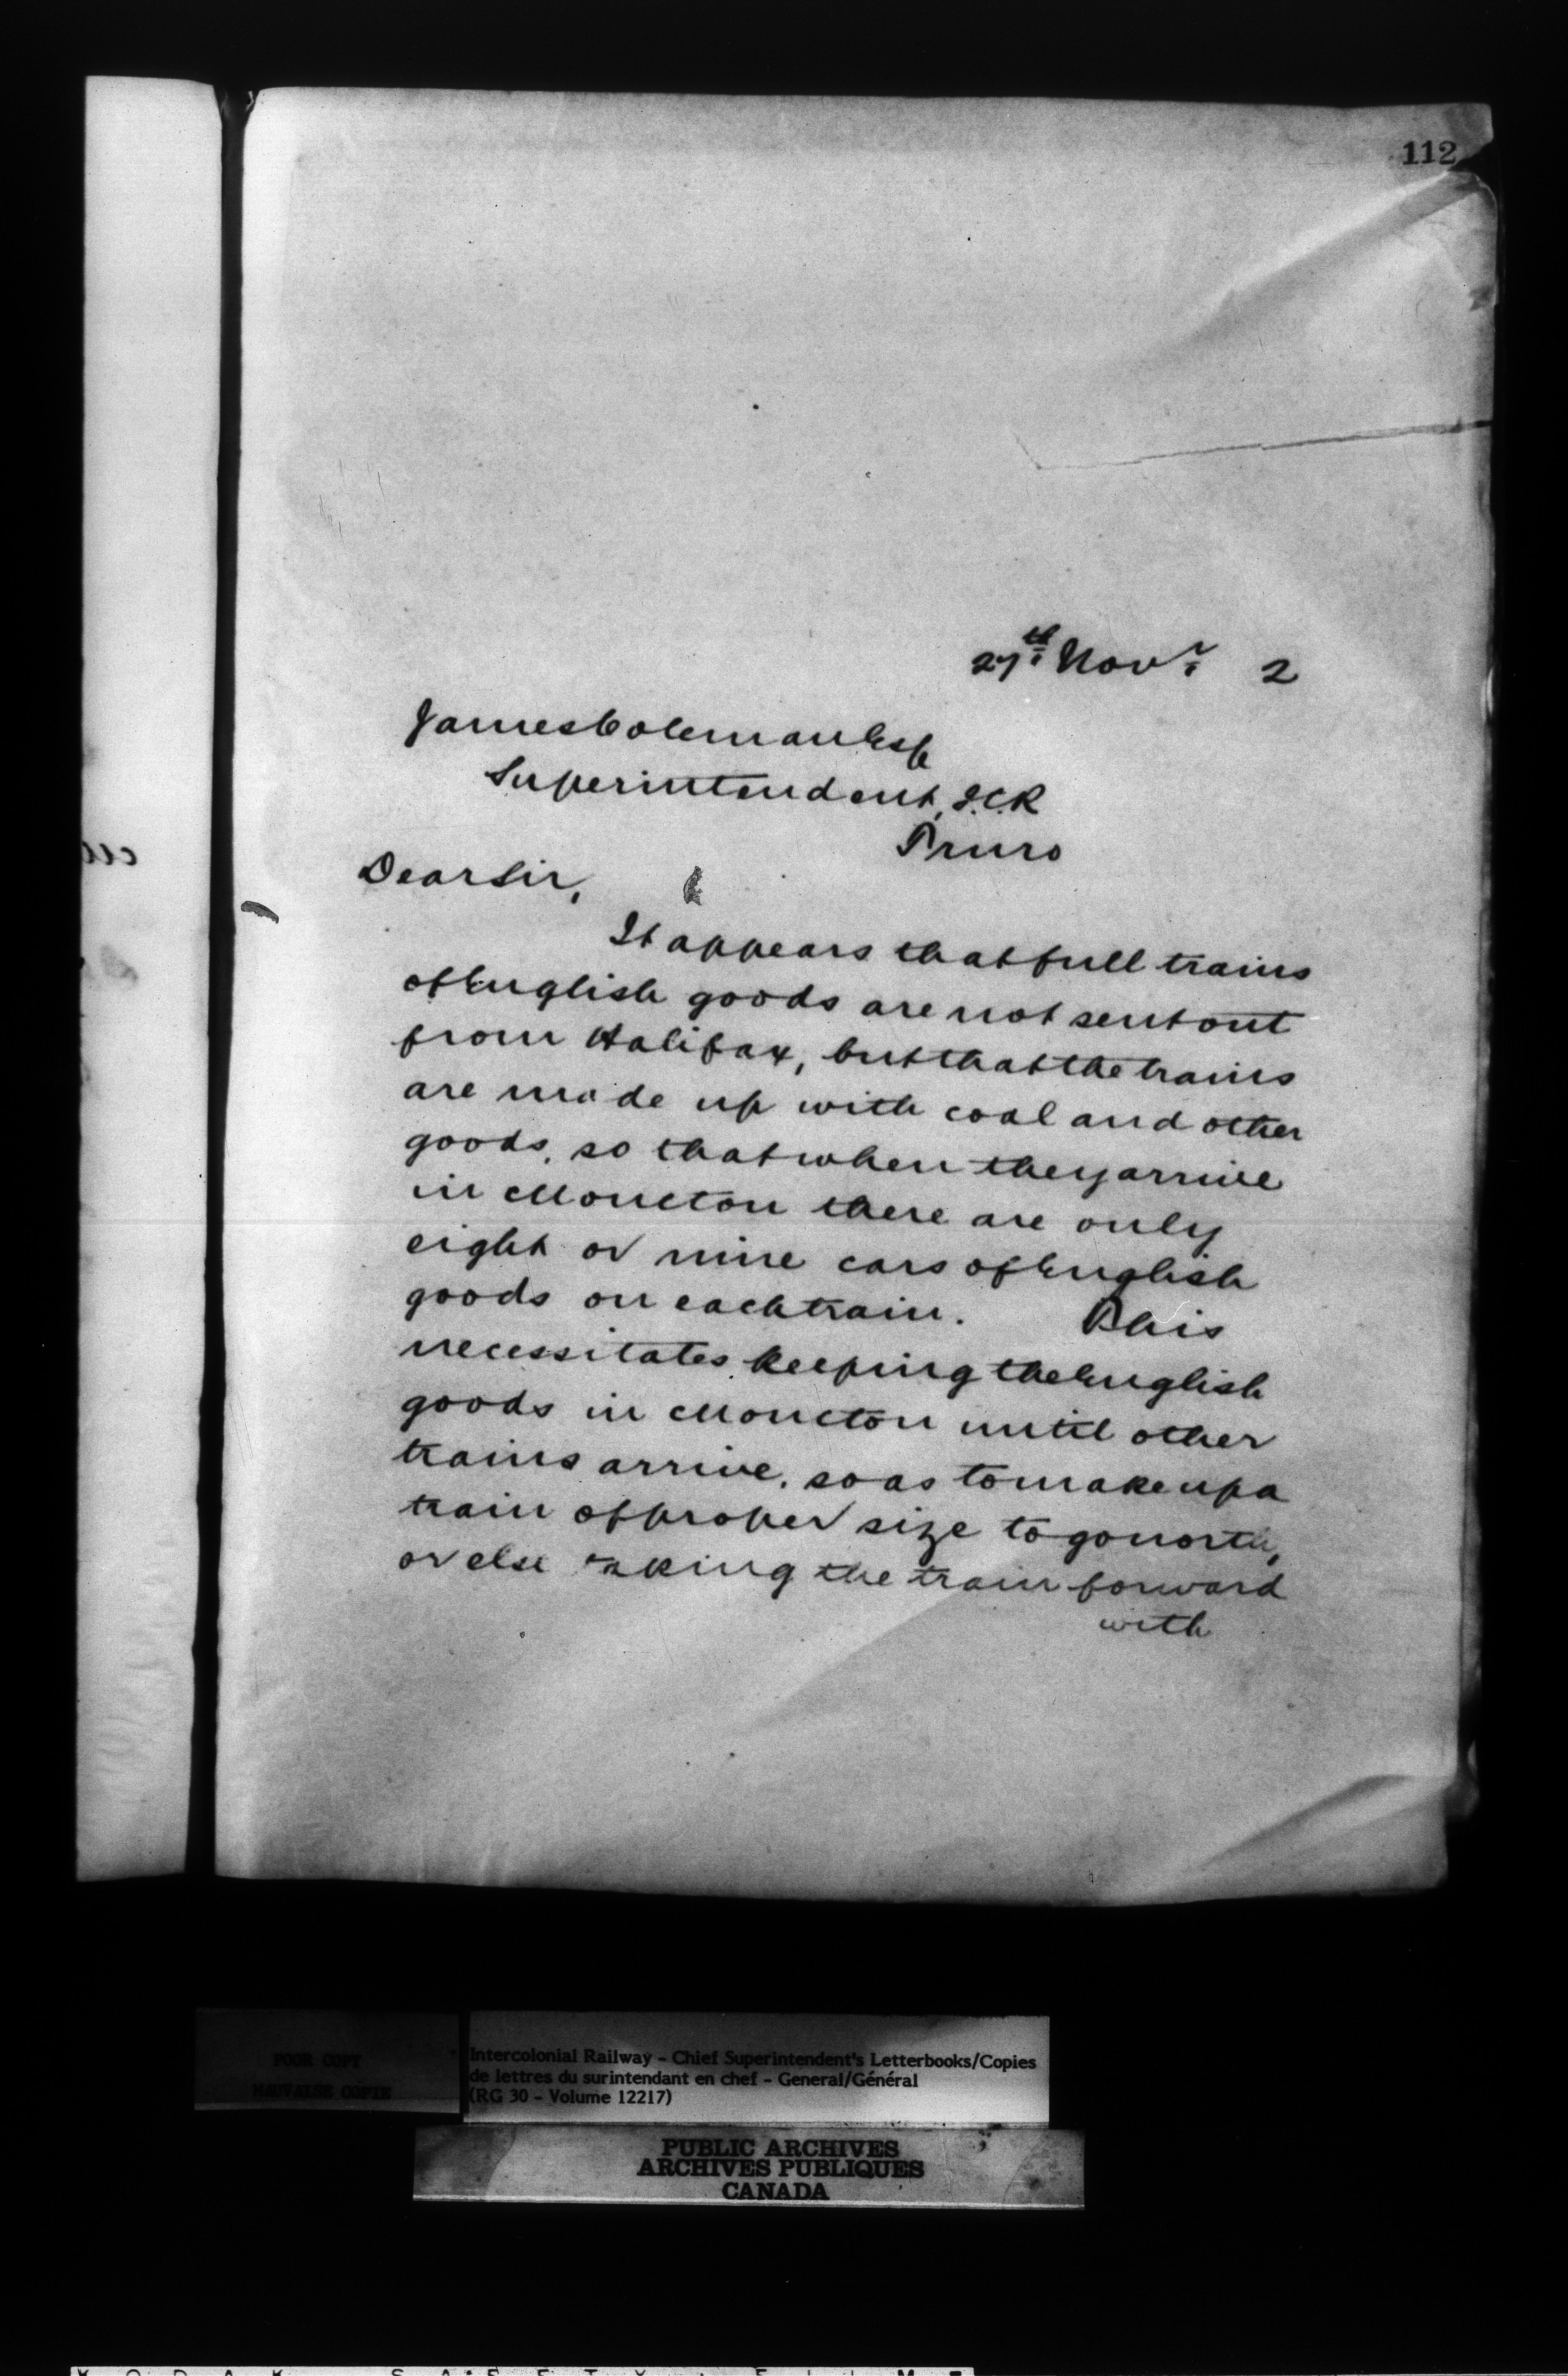 112
27th Novr 2
James Coleman Esq
Superintendent, I.C.R
Truro
Dear Sir,
It appears that full trains
of English goods are not sent out
from Halifax, but that the trains
are made up with coal and other
goods, so that when they arrive
in Moncton there are only
eight or nine cars of English
goods on each train. This
necessitates keeping the English
goods in Moncton until other
trains arrive, so as to make up a
train of proper size to go north,
or else taking the train forward
with
POOR COPY
MAUVAISE COPIE
Intercolonial Railway - Chief Superintendent's Letterbooks/Copies
de lettres du surintendant en chef - General/Général
(RG 30 - Volume 12217)
PUBLIC ARCHIVES
ARCHIVES PUBLIQUES
CANADA